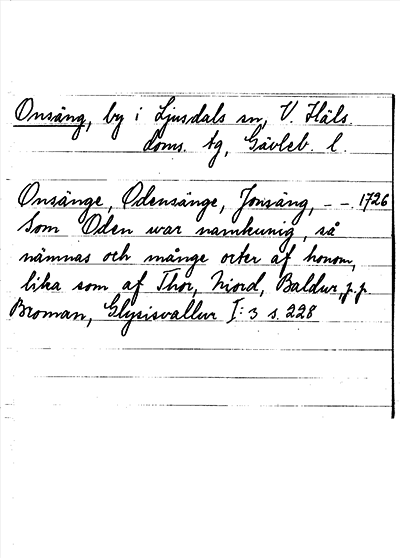 Onsäng, by i Ljusdals sn, V. Häls.
doms. tg, Gävleb. l.
Onsänge, Odensänge, Jonsäng, - - 1726
Som Oden war namkunig, så
nämnas och månge orter af honom,
lika som af Thor, Niord, Baldur, p.p.
Broman, Glysisvallur I: 3 s. 228